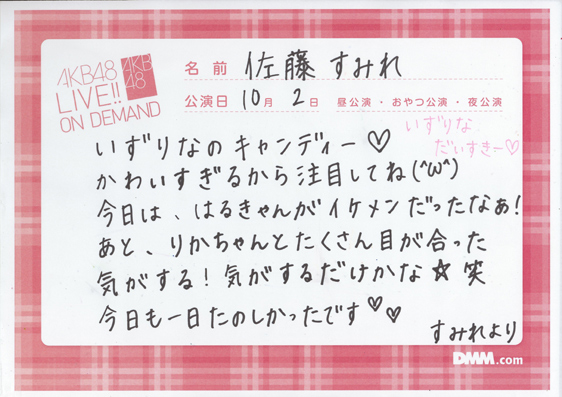 AKB48
LIVE!!
ON DEMAND
AKB
48
名前 佐藤すみれ
公演日 10月 2日 昼公演・おやつ公演・夜公演
いずりな
だいすきー♡
いずりなのキャンディー♡
かわいすぎるから注目してね(^ω^)
今日は、はるきゃんがイケメンだったなぁ!
あと、りかちゃんとたくさん目が合った
気がする!気がするだけかな☆笑
今日も一日たのしかったです♡♡
すみれより
DMM.com